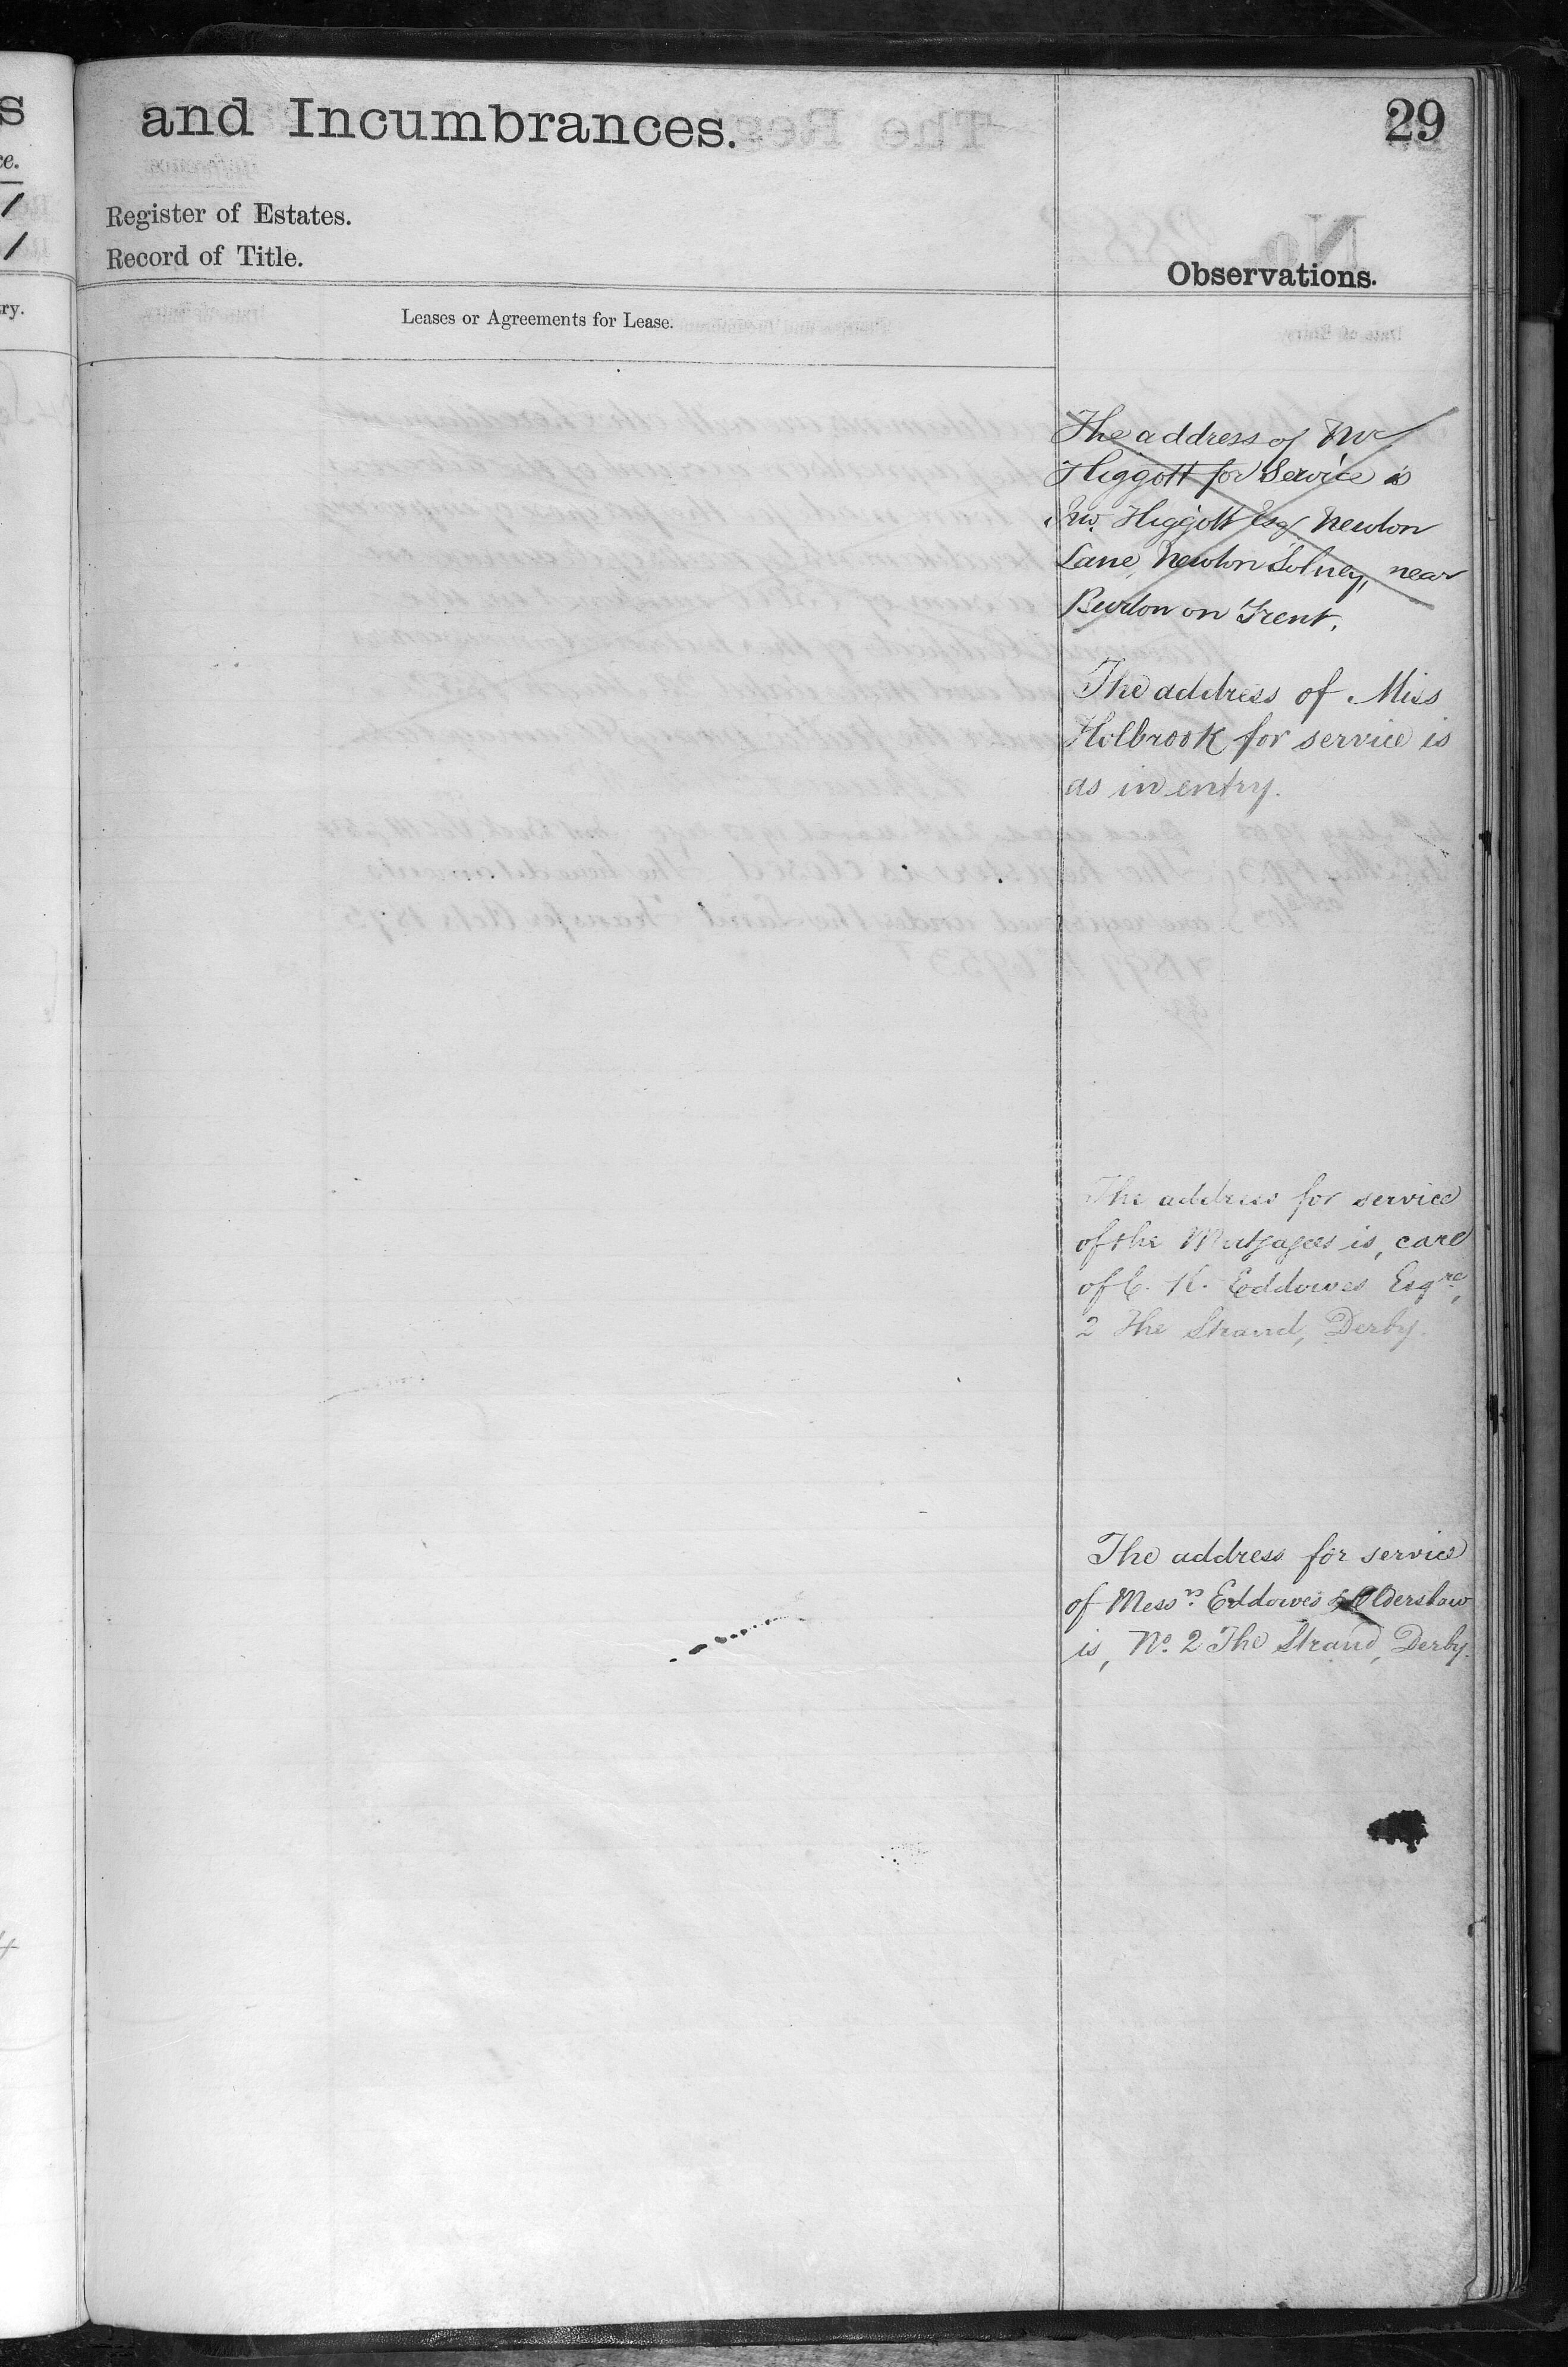 and Incumbrances.
29
Register of Estates.
Record of Title.
Observations.
Leases or Agreements for Lease.
The address of Mr
Higgott for Service is
Jno. Higgott Esq Newton
Lane, Newton Solney, near
Burton on Trent.
The address of Miss
Holbrook for service is
as in entry.
The address for service
of the Mortgagees is, care
of E. K. Eddowes Esqre,
2 The Strand, Derby.
The address for service
of Messrs. Eddowes & Oldershaw
is, No. 2 The Strand, Derby.